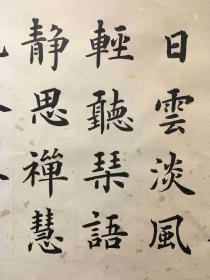 日雲淡風
輕聽琹語
静思禪慧